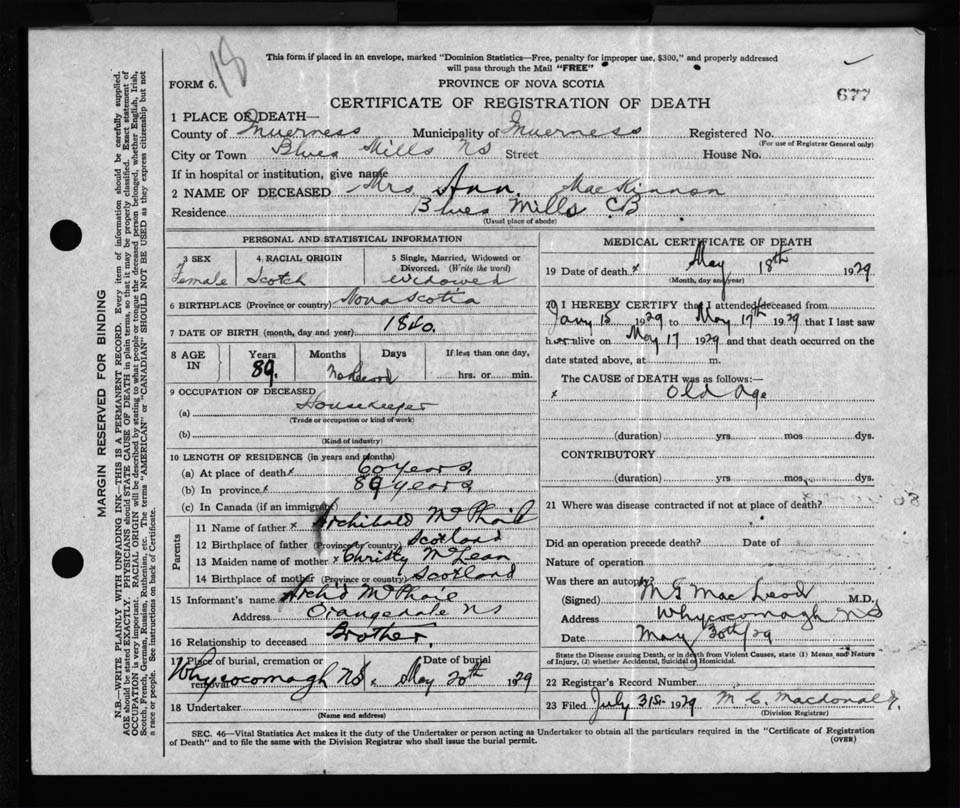 18
This form if placed in an envelope, marked "Dominion Statistics—Free, penalty for improper use, $300," and properly addressed
will pass through the Mail "FREE"
FORM 6.
PROVINCE OF NOVA SCOTIA
677
CERTIFICATE OF REGISTRATION OF DEATH
1 PLACE OF DEATH—
County of Inverness Municipality of Inverness Registered No.
(For use of Registrar General only)
City or Town Blues Mills NS Street House No.
If in hospital or institution, give name
2 NAME OF DECEASED Mrs Ann MacKinnon
Residence Blues Mills CB
(Usual place of abode)
PERSONAL AND STATISTICAL INFORMATION
3 SEX 4. RACIAL ORIGIN 5 Single, Married, Widowed or
Divorced. (Write the word)
Female Scotch Widowed
6 BIRTHPLACE (Province or country) Nova Scotia
7 DATE OF BIRTH (month, day and year) 1840.
8 AGE IN Years Months Days If less than one day,
89. No Record hrs. or min.
9 OCCUPATION OF DECEASED
(a) Housekeeper
(Trade or occupation or kind of work)
(b)
(Kind of industry)
10 LENGTH OF RESIDENCE (in years and months)
(a) At place of death x 60 years
(b) In province x 89 years
(c) In Canada (if an immigrant)
Parents
11 Name of father x Archibald McPhail
12 Birthplace of father (Province or country) Scotland
13 Maiden name of mother x Christy McLean
14 Birthplace of mother (Province or country) Scotland
15 Informant's name Arch'd McPhail
Address Orangedale NS
16 Relationship to deceased Brother
17 Place of burial, cremation or removal Date of burial
Whycocomagh NS. May 20th 1929
18 Undertaker
(Name and address)
MEDICAL CERTIFICATE OF DEATH
19 Date of death x May 18th 1929
(Month, day and year)
20 I HEREBY CERTIFY that I attended deceased from
Jany 15 1929 to May 17th 1929 that I last saw
her alive on May 17 1929 and that death occurred on the
date stated above, at m.
The CAUSE OF DEATH was as follows:—
x Old Age
(duration) yrs mos dys.
CONTRIBUTORY
(duration) yrs mos. dys.
21 Where was disease contracted if not at place of death?
Did an operation precede death? Date of
Nature of operation
Was there an autopsy
(Signed) MacLeod M.D.
Address Whycocomagh NS
Date May 20th/29
State the Disease causing Death, or in death from Violent Causes, state (1) Means and Nature
of Injury, (2) whether Accidental, Suicidal or Homicidal.
22 Registrar's Record Number
23 Filed July 31st 1929 M. C. Macdonald
(Division Registrar)
SEC. 46—Vital Statistics Act makes it the duty of the Undertaker or person acting as Undertaker to obtain all the particulars required in the "Certificate of Registration
of Death" and to file the same with the Division Registrar who shall issue the burial permit.
(OVER)
MARGIN RESERVED FOR BINDING
N.B.—WRITE PLAINLY WITH UNFADING INK—THIS IS A PERMANENT RECORD. Every item of information should be carefully supplied.
AGE should be stated EXACTLY. PHYSICIANS should STATE CAUSE OF DEATH in plain terms, so that it may be properly classified. Exact statement of
OCCUPATION is very important. RACIAL ORIGIN will be described by stating to what people or tongue the deceased person belonged, whether English, Irish,
Scotch, French, German, Russian, Ruthenian, etc. The terms "AMERICAN" or "CANADIAN" SHOULD NOT BE USED as they express citizenship but not
a race or people. See instructions on back of Certificate.